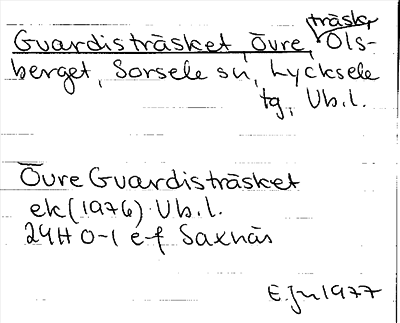 träsk,
Guardisträsket, Övre, Ols-
berget, Sorsele sn, Lycksele
tg, Vb.l.
Övre Guardisträsket
ek (1976) Vb.l.
24H 0-1 e-f Saxnäs
E.Jn 1977